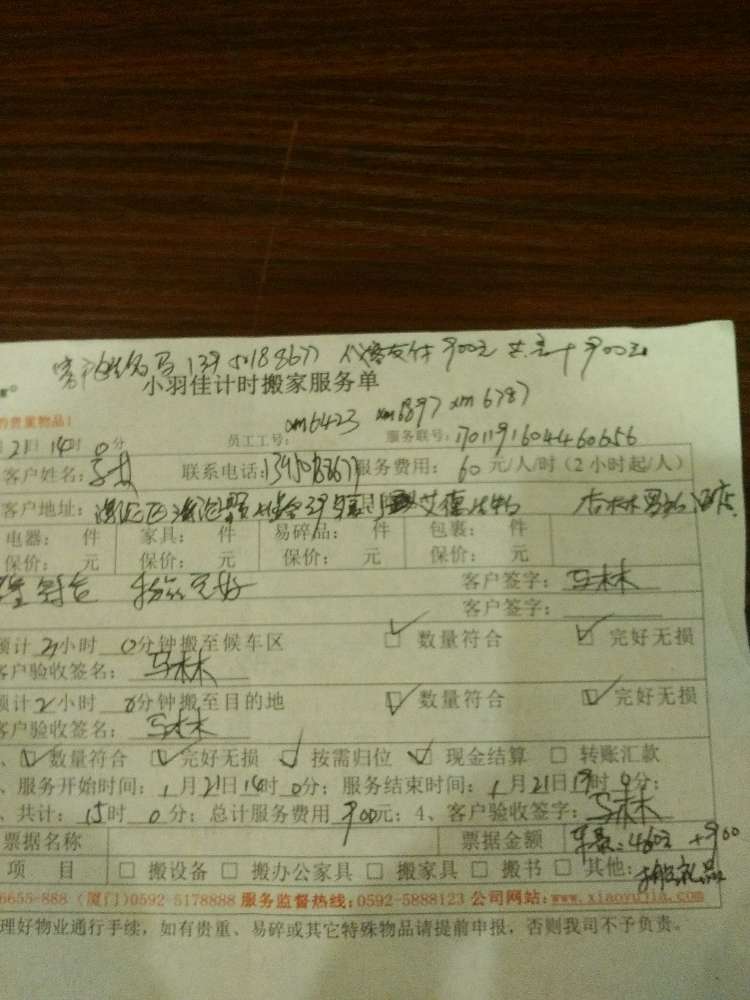 小羽佳计时搬家服务单
的贵重物品!
xm6423 xm6897 xm6787
月21日14时0分 员工工号: 服务联号:1701191604460656
客户姓名:马林 联系电话: 服务费用:60元/人/时(2小时起/人)
客户地址:
电器: 件 家具: 件 易碎品: 件 包裹: 件
保价: 元 保价: 元 保价: 元 保价: 元
完好 客户签字:马林
客户签字:
预计2小时0分钟搬至候车区 数量符合 完好无损
客户验收签名:马林
预计2小时0分钟搬至目的地 数量符合 完好无损
客户验收签名:马林
、数量符合 完好无损 按需归位 现金结算 转账汇款
、服务开始时间:1月21日14时0分;服务结束时间:1月21日19时0分;
、共计:15时0分;总计服务费用900元;4、客户验收签字:马林
票据名称 票据金额 460元+900
项 目 搬设备 搬办公家具 搬家具 搬书 其他:
6655-888 (厦门)0592-5178888 服务监督热线:0592-5888123 公司网站:www.xiaoyujia.com
理好物业通行手续,如有贵重、易碎或其它特殊物品请提前申报,否则我司不予负责。